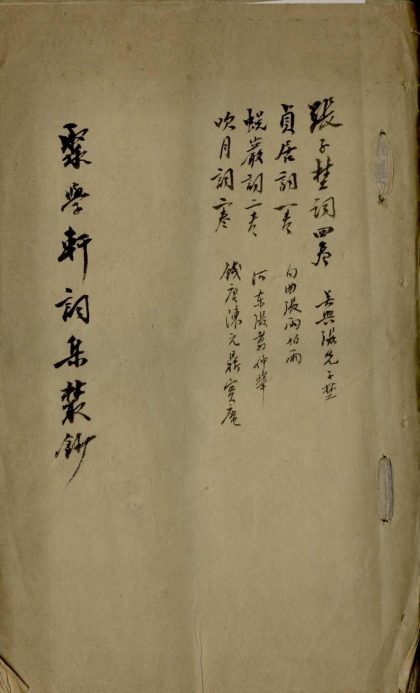 張子野詞四卷 吳興張先子野
貞居詞一卷 句曲張雨伯雨
蛻巖詞二卷 河東張翥仲舉
吹月詞二卷 錢唐陳元鼎實庵
聚學軒詞集叢鈔